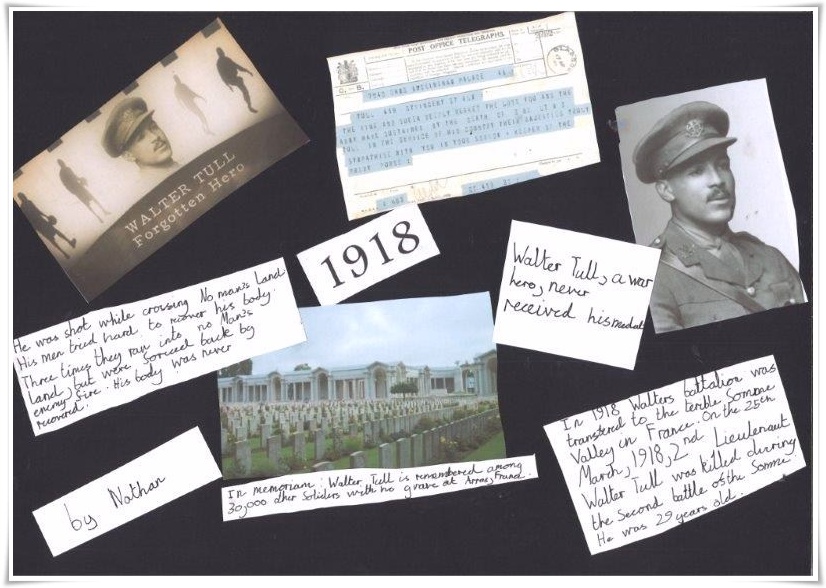 WALTER TULL
Forgotten Hero
POST OFFICE TELEGRAPHS.
THE KING AND QUEEN DEEPLY REGRET THE LOSS YOU AND THE
ARMY HAVE SUSTAINED BY THE DEATH OF
IN THE SERVICE OF HIS COUNTRY THEIR MAJESTIES TRULY
SYMPATHISE WITH YOU IN YOUR SORROW KEEPER OF THE
1918
Walter Tull, a war
hero, never
received his medal
He was shot while crossing No man's Land.
His men tried hard to recover his body.
Three times they ran into no Man's
Land, but were forced back by
enemy fire. His body was never
recovered.
In memoriam: Walter Tull is remembered among
30,000 other Soliders with no grave at Arras, France.
by Nathan
In 1918 Walters battalion was
transfered to the terible Somme
Valley in France. On the 25th
March, 1918, 2nd Lieutenaut
Walter Tull was killed durring
the Second battle of the Somme
He was 29 years old.